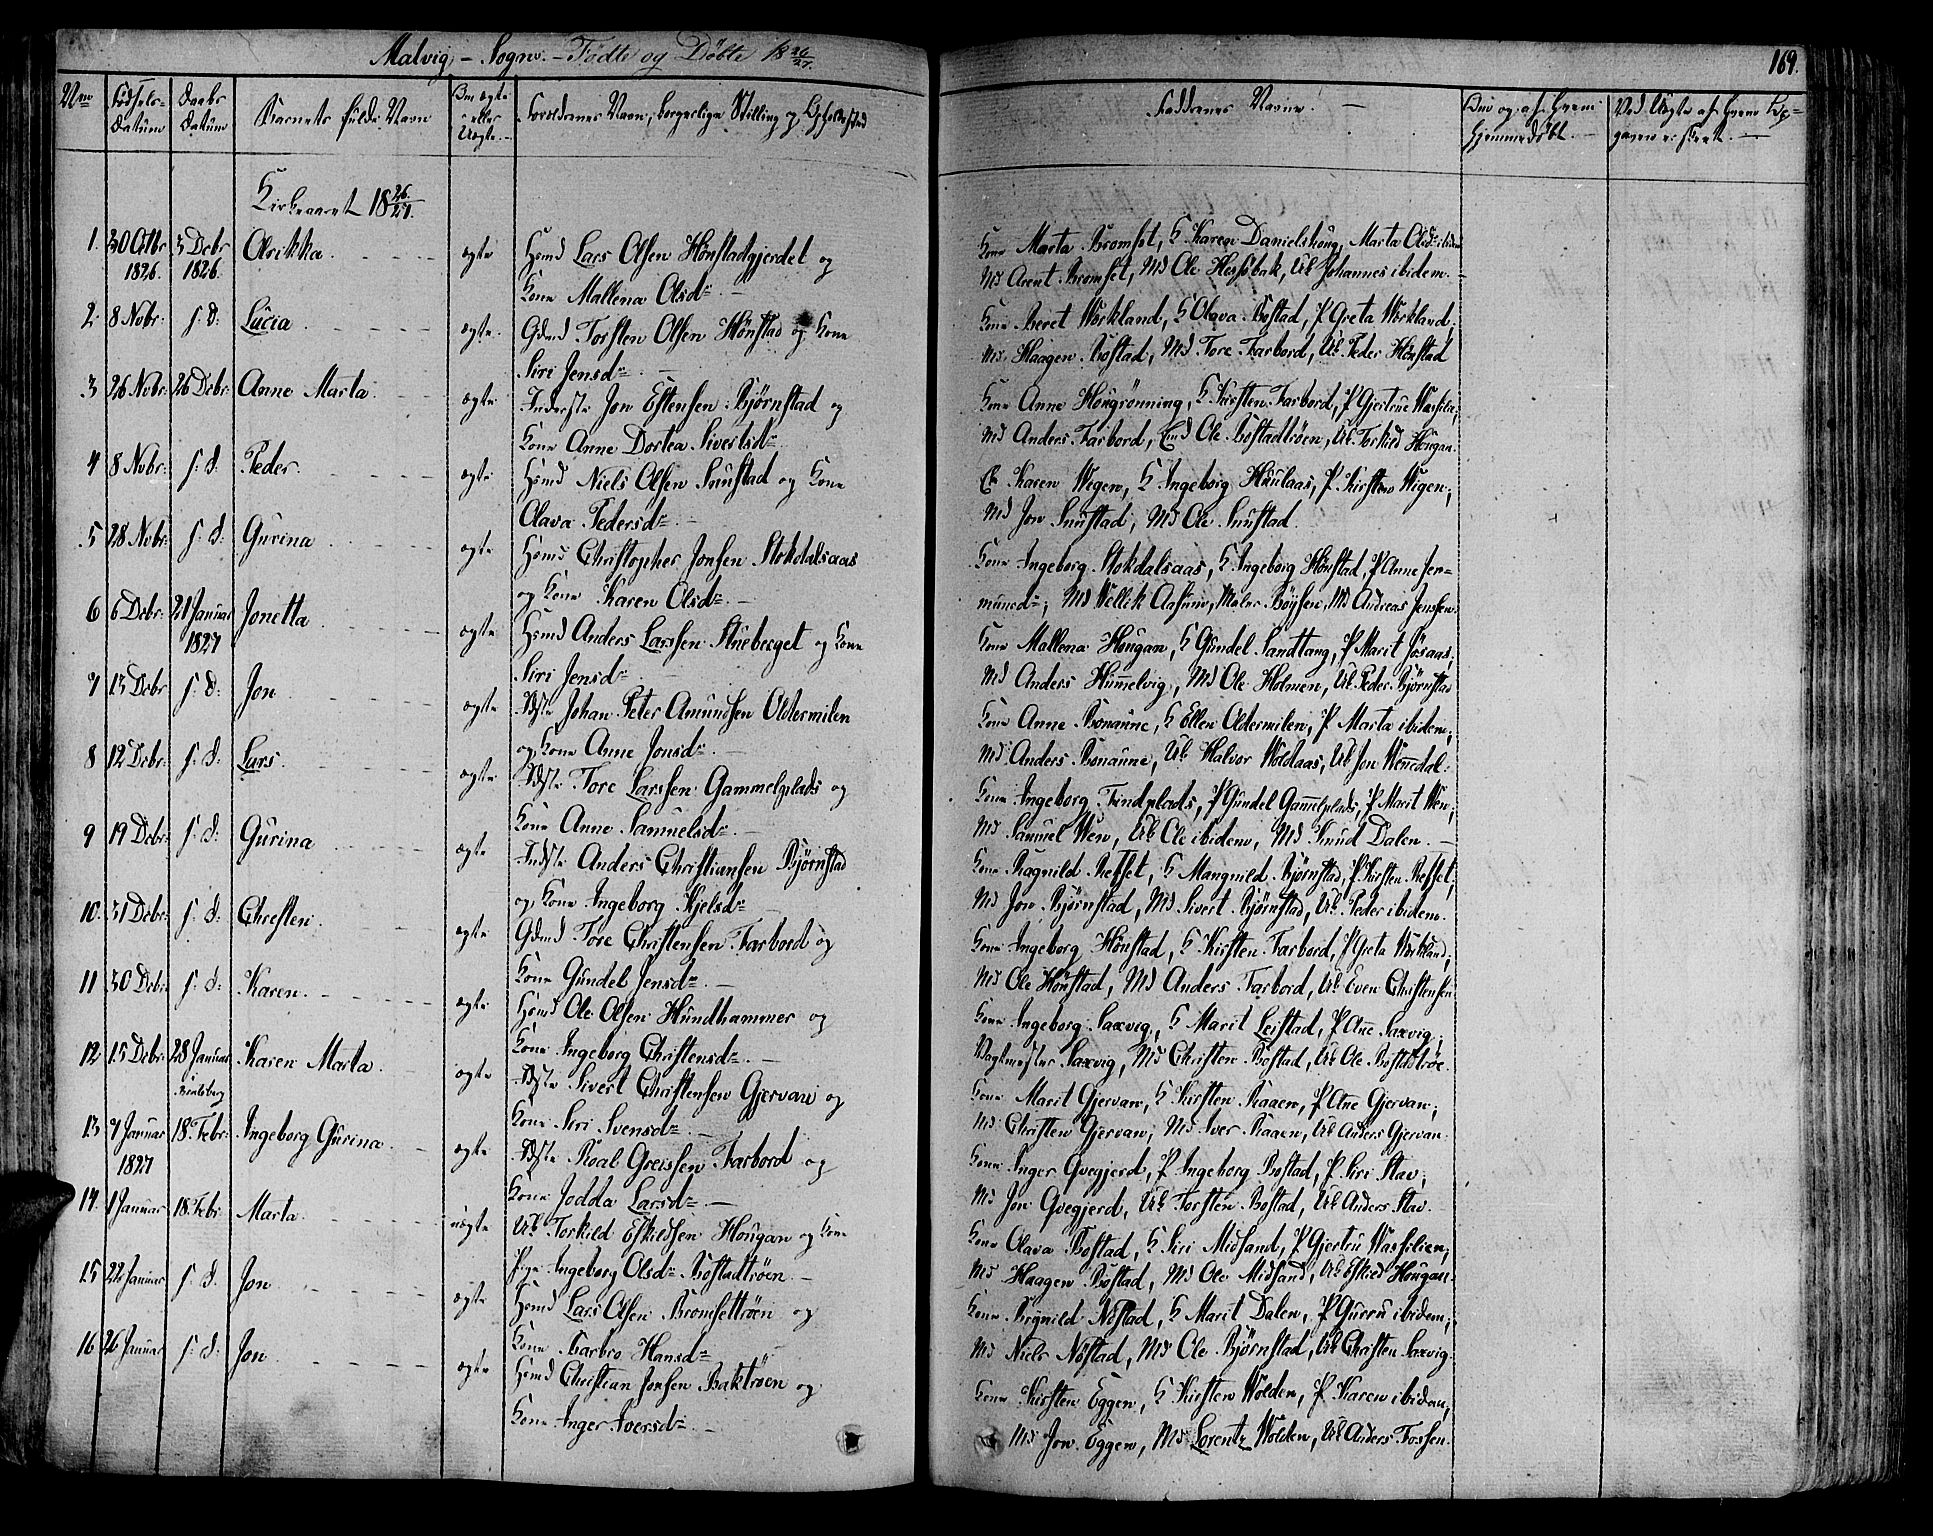 Malvig - Sogn. - Fødte og Døbte 18 26/27.
169.
Nro
Fødsels-Datum
Daabs Datum
Barnets fulde Navn
Om ægte eller Uægte.
Foreldrenes Navn, borgerlige Stilling og Opholdssted
Faddrenes Navne. —
Hvo og af hvem hjemmedøbt. —
Kirkeaaret 18 26/27.
1. 30 Octbr 1826. 3 Debr 1826. Olrikka ægte Hsmd Lars Olsen Hönstadgjerdet og
Kone Mallena Olsdr. —
Kone Marta Bromset, K Karen Danielshoug, Marta Olsdr ibidem
Md Arent Bromset, Md Ole Hessbak, Uk Johannes ibidem. -
2. 8 Nobr: s: d: Lucia ægte Gdmd Torsten Olsen Hönstad og Kone
Siri Jensdr. —
Kone Beret Workland, K Olava Bostad, P Greta Workland.
Md Haagen Bostad, Md Tore Farbord, Uk Peder Hönstad
3 26 Nobr: 26 Debr: Anne Marta ægte Inderste Jon Estensen Björnstad og
Kone Anne Dortea Sivertsdr.
Kone Anne Hougrönning, K Kirsten Farbord, P Gjertrue Wassilie,
Md Anders Farbord, Emd Ole Bostadtröen, Uk Torkild Hougan.
4 8 Nobr: s: d. Peder ægte Hsmd Niels Olsen Snustad og Kone
Olava Pedersdr. —
E Karen Wegen, K Ingeborg Haulaas, P Kirsten Wigen,
Md Jon Snustad, Md Ole Snustad.
5 28 Nobr: s: d: Gurina ægte Hsmd Christopher Jonsen Stokdalsaas
og Kone Karen Olsdr. —
Kone Ingeborg Stokdalsaas, K Ingeborg Hönstad, P Anne Jer-
mundr, Md Wellik Aasund, Maler Böysen, Md Andreas Jenssen.
6 6 Debr: 21 Januar 1827 Jonetta ægte Hsmd Anders Larssen Stueberget og Kone
Siri Jensdr. —
Kone Mallena Hougan, K Gundel Sandtang, P Marit Jösaas,
Md Anders Hummelvig, Md Ole Holmen, Uk Peder Björnstad
7 13 Debr s: d: Jon ægte Idste Johan Peter Amundsen Oldermilen
og Kone Anne Jonsdr. —
Kone Anne Bonaune, K Ellen Oldermilen, P Marta ibidem,
Md Anders Bonaune, Uk Halvor Woldaas, Uk Jon Wennedal:
8 12 Debr: s: d: Lars ægte Idste Tore Larssen Gammelplads og
Kone Anne Samuelsdr. —
Kone Ingeborg Findplads, P Gundel Gamelplads, P Marit Wen,
Md Samuel Wen, Uk Ole ibidem, Md Knud Dalen. —
9 19 Debr: s: d: Gurina ægte Indste Anders Christiansen Björnstad
og Kone Ingeborg Kjelsdr.
Kone Ragnild Refset, K Mangnild Björnstad, P Kirsten Refset,
Md Jon Björnstad, Md Sivert Björnstad, Uk Peder ibidem.
10. 31 Debr: s: d. Chresten ægte Gdmd Tore Christensen Farbord og
Kone Gundel Jensdr. —
Kone Ingeborg Hönstad, K Kirsten Farbord, P Greta Workland,
Md Ole Hönstad, Md Anders Farbord, Uk Even Christensen
11 30 Debr: s: d: Karen ægte Hsmd Ole Olsen Hundhammer og
Kone Ingeborg Christensdr. —
Kone Ingeborg Saxvig, K Marit Leistad, P Ane Saxvig,
Vagtmester Saxvig, Md Christen Bostad, Uk Ole Bostadtröe.
12 15 Debr: 28 Januar Karen Marta ægte Idste Sivert Christensen Gjervan og
Kone Siri Svensdr. —
Kone Marit Gjervan, K Kirsten Raaen, P Ane Gjervan,
Md Christen Gjervan, Md Iver Raaen, Uk Anders Gjervan.
13 7 Januar 1827 18 Febr: Ingeborg Gurina ægte Idste Roal Greissen Farbord og
Kone Jodda Larsdr. —
Kone Inger Qvegjerd, P Ingeborg Bostad, P Siri Stav,
Md Jon Qvegjerd, Uk Torsten Bostad, Uk Anders Stav.
14. 1 Januar 18 Febr: Marta uægte Uk Torkild Eskildsen Hougan og
Pige Ingeborg Olsdr Bostadtröen. —
Kone Olava Bostad, K Siri Midsand, P Gjertru Wassilien,
Md Haagen Bostad, Md Ole Midsand, Uk Eskild Hougan.
15 22 Januar s: d. Jon ægte Hsmd Lars Olsen Bromsettröen og
Kone Barbro Hansdr
Kone Ragnild Nöstad, K Marit Dalen, P Gurru ibidem,
Md Niels Nöstad, Md Ole Björnstad, Uk Christen Saxvig.
16 26 Januar s: d: Jon ægte Hsmd Christian Jonsen Baktröen og
Kone Inger Iversdr. —
Kone Kirsten Eggen, K Kirsten Wolden, P Karen ibidem,
Md Jon Eggen, Md Lorentz Wolden, Uk Anders Fossen.